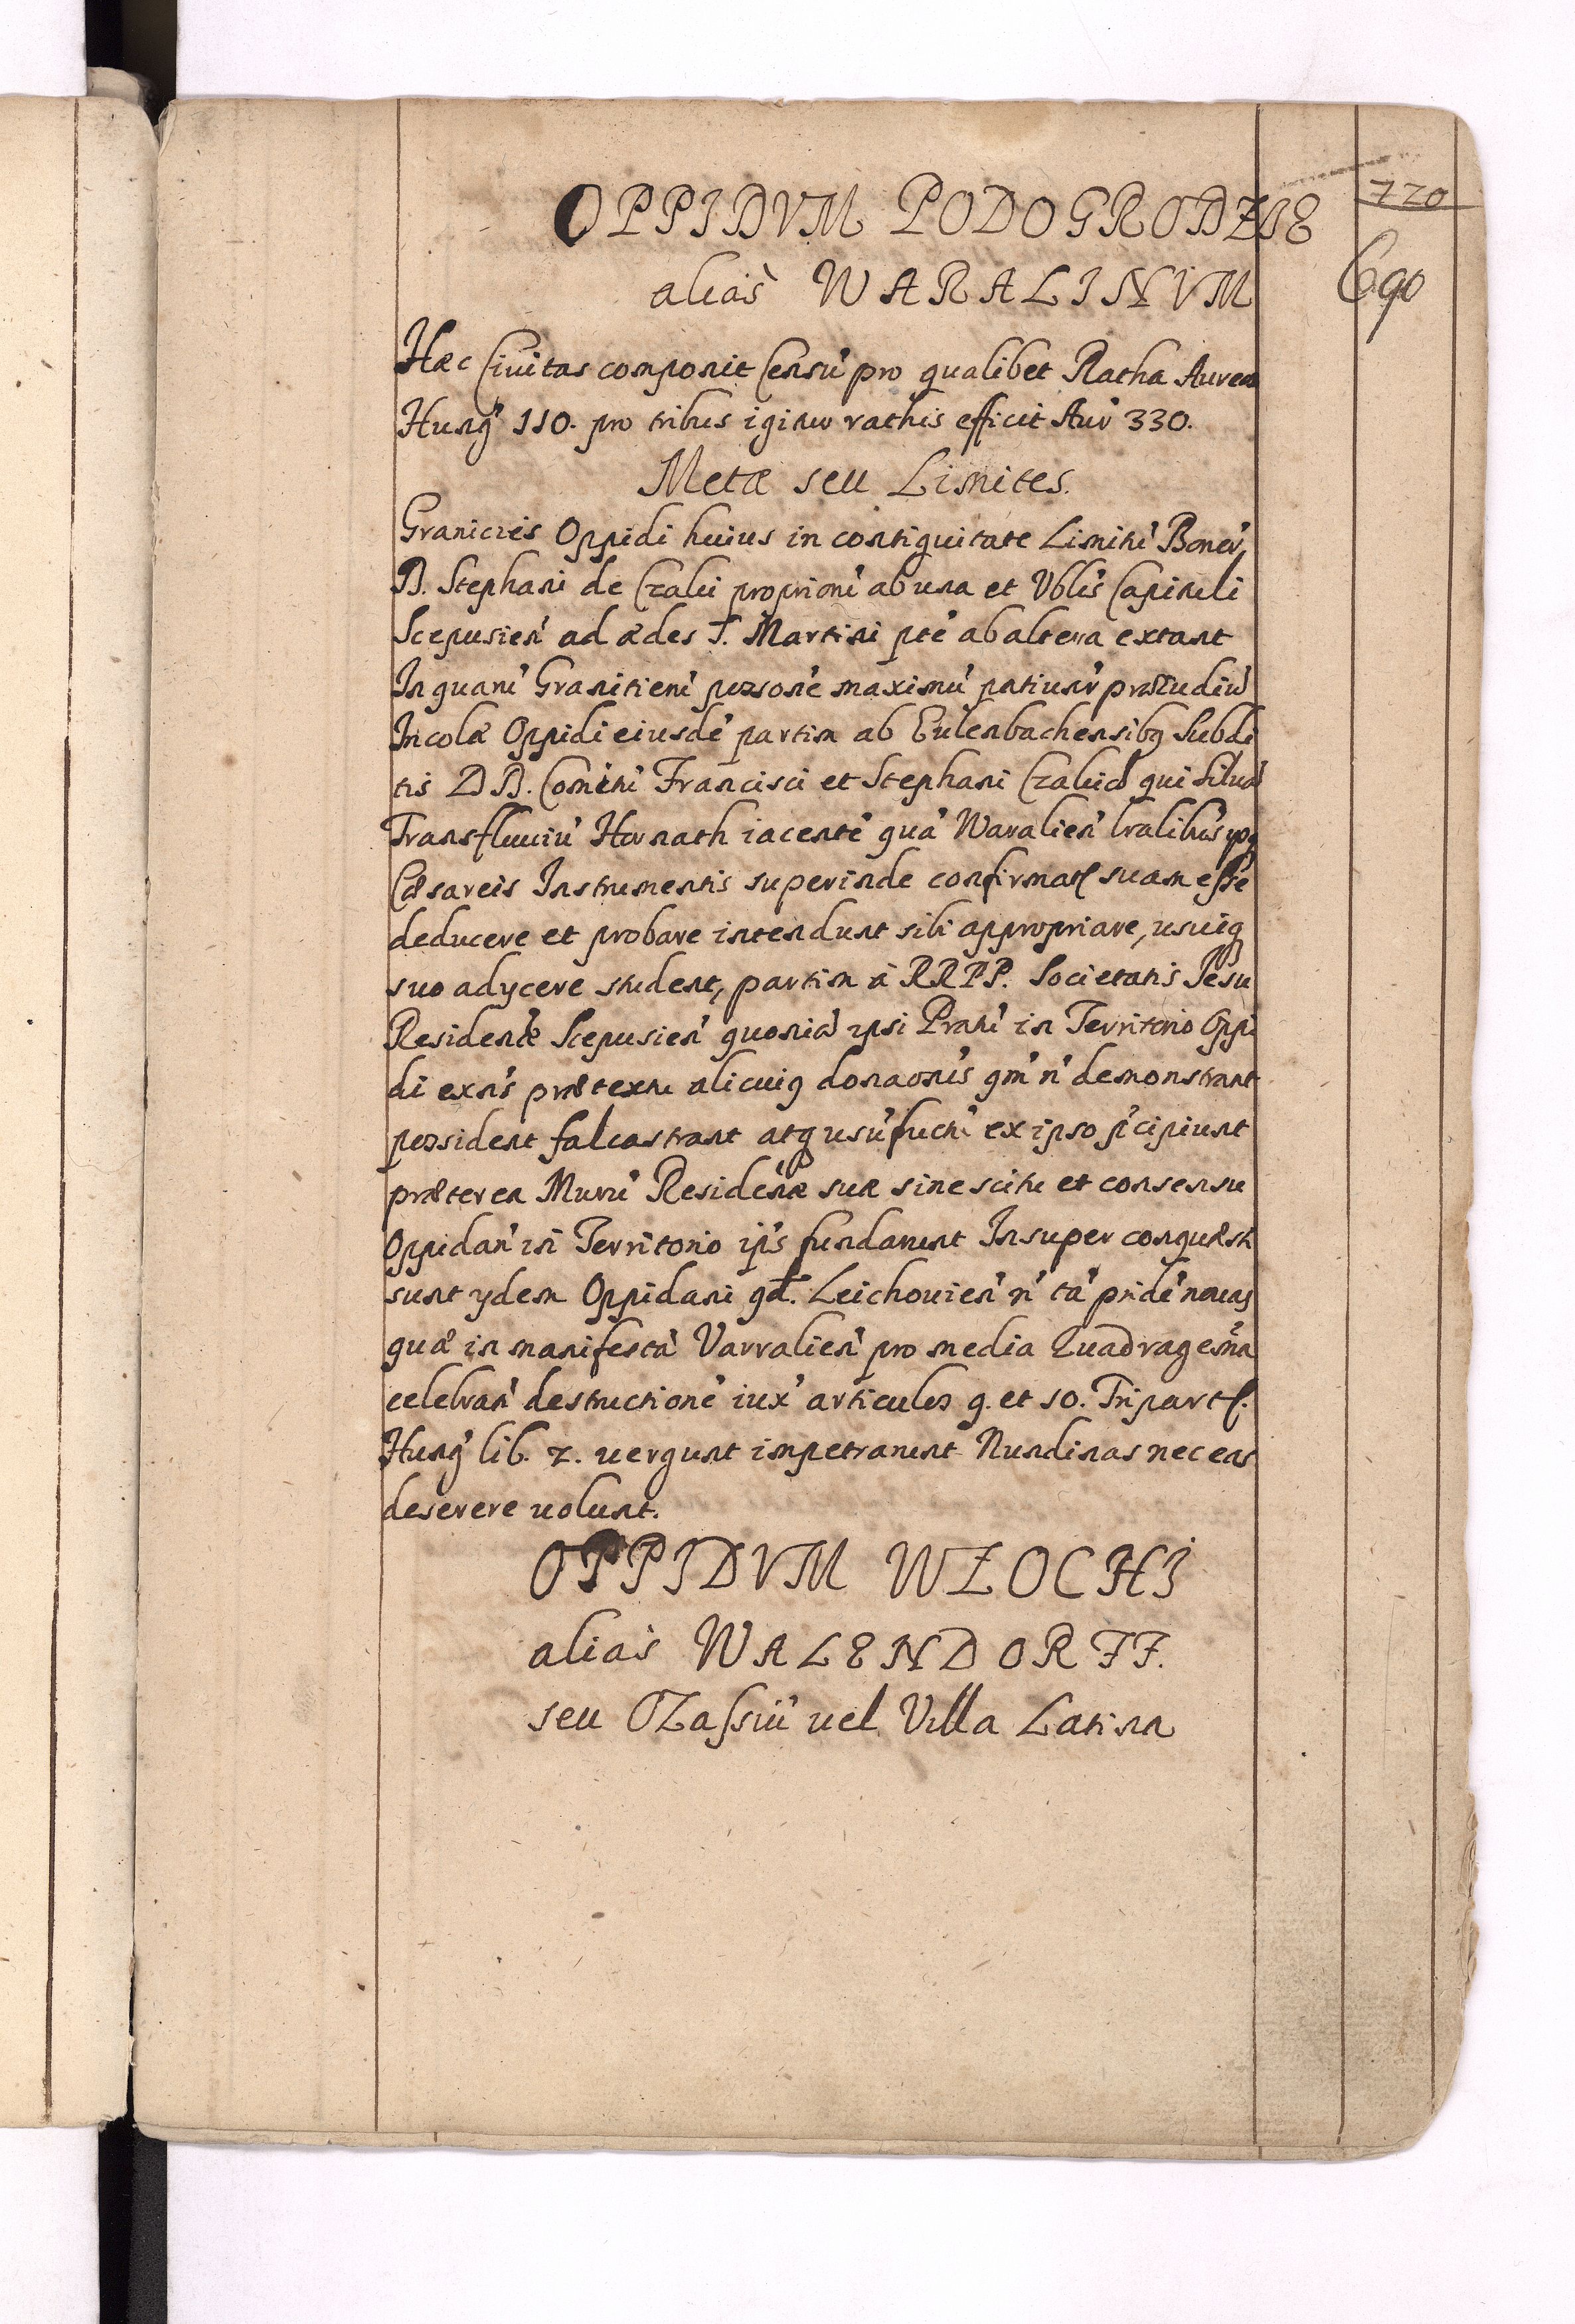 720
OPPIDVM PODOGRODZIE
690
alias WARALINVM
Hæc Ciuitas componit Censu' pro qualibet Ratha Aureos
Hung' 110. pro tribus igitur rathis efficit Aur' 330.
Metæ seu Limites.
Granicies Oppidi huius in contiguitate Limitu' Bonor'
D. Stephani de Czaki proprioru' ab una et Vblis Capituli
Scepusien' ad ædes S. Martini pte' ab altera extant
In quaru' Granitieru' possone' maximu' patiunt' præiudiu'
Incolæ Oppidi eiusde' partim ab Eulenbachensibq Subdi
tis D D. Comitu' Francisci et Stephani Czakio' qui Silua'
Transfluuiu' Hornath iacente' qua' Waralien' lralibus ipq
Cæsareis Instrumentis superinde confirmat' suam esse
deducere et probare intendunt sibi appropriare, usuiq
suo adycere student, partim à RRPP. Societatis Jesu
Residentiæ Scepusien' quonia' ipsi Pratu' in Territorio Oppi
di exn's prætextu alicuiq donaonis qm' n' demonstrant
possident falcastrant atq usu'fuctu' ex ipso p'cipiunt
præterea Muru' Residen'æ suæ sine scitu et consensu
Oppidan' in Territorio ip's fundarunt Insuper conquæsti
sunt ydem Oppidani qd. Leichouien' n' ta' pride' nouas
quæ in manifesta' Varralien' pro media Quadragesima
celebran' destructione' iux' articulos 9. et 10. Tripart.
Hung' lib. 2. uergunt impetrarunt Nundinas nec eas
deserere uolunt.
OPPIDVM WŁOCHI
alias WALENDORFF.
seu OŁassiu' uel Villa Latina